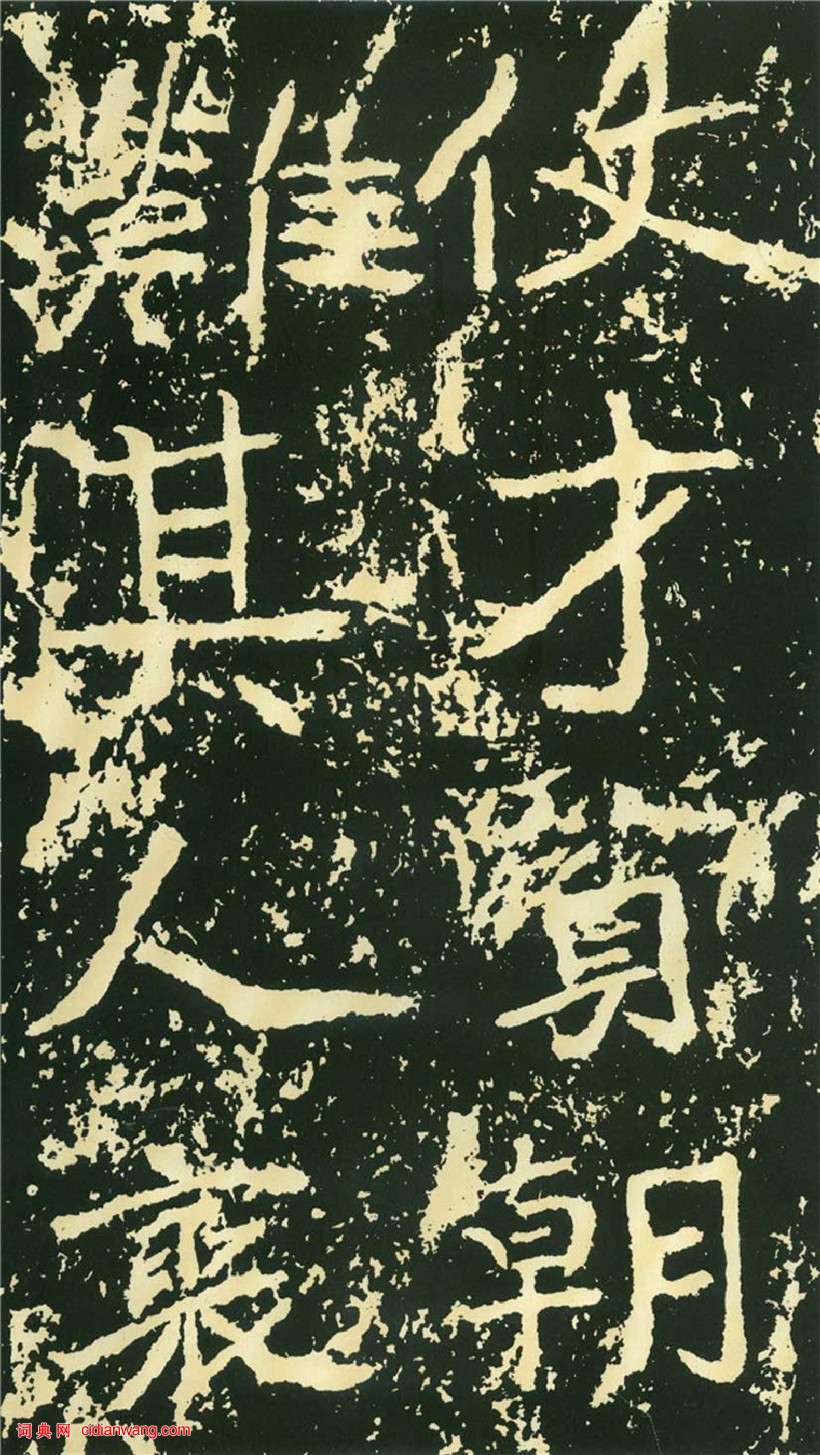 仗才賢朝
難其人褒
词典网 cidianwang.com